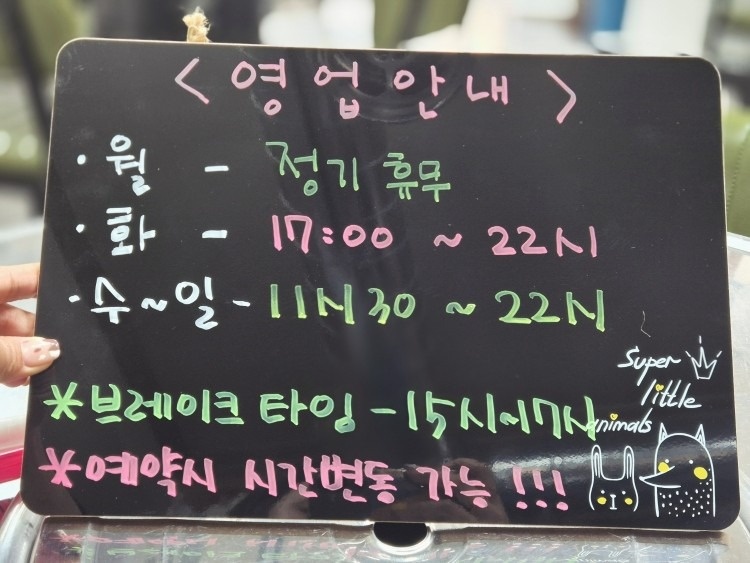 < 영업안내 >
· 월 - 정기 휴무
· 화 - 17:00 ~ 22시
· 수~일 - 11시30 ~ 22시
*브레이크 타임 - 15시~17시
*예약시 시간변동 가능 !!!
Super
little
animals